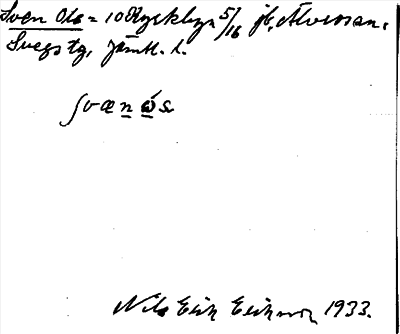 Sven Ols = 10 Ryckbyn 5/16 jb, Älvrosen.
Svegs tg, Jämtl. l.
svænωs
Nils Erik Erikson 1933.